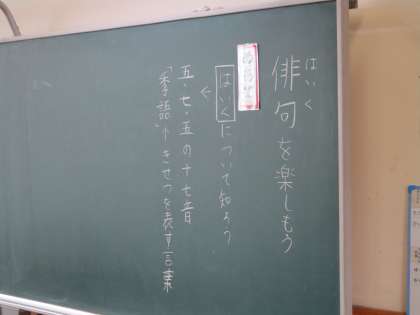 はいく
俳句を楽しもう
めあて
はいくについて知ろう
五・七・五の十七音
「季語」←きせつを表す言葉